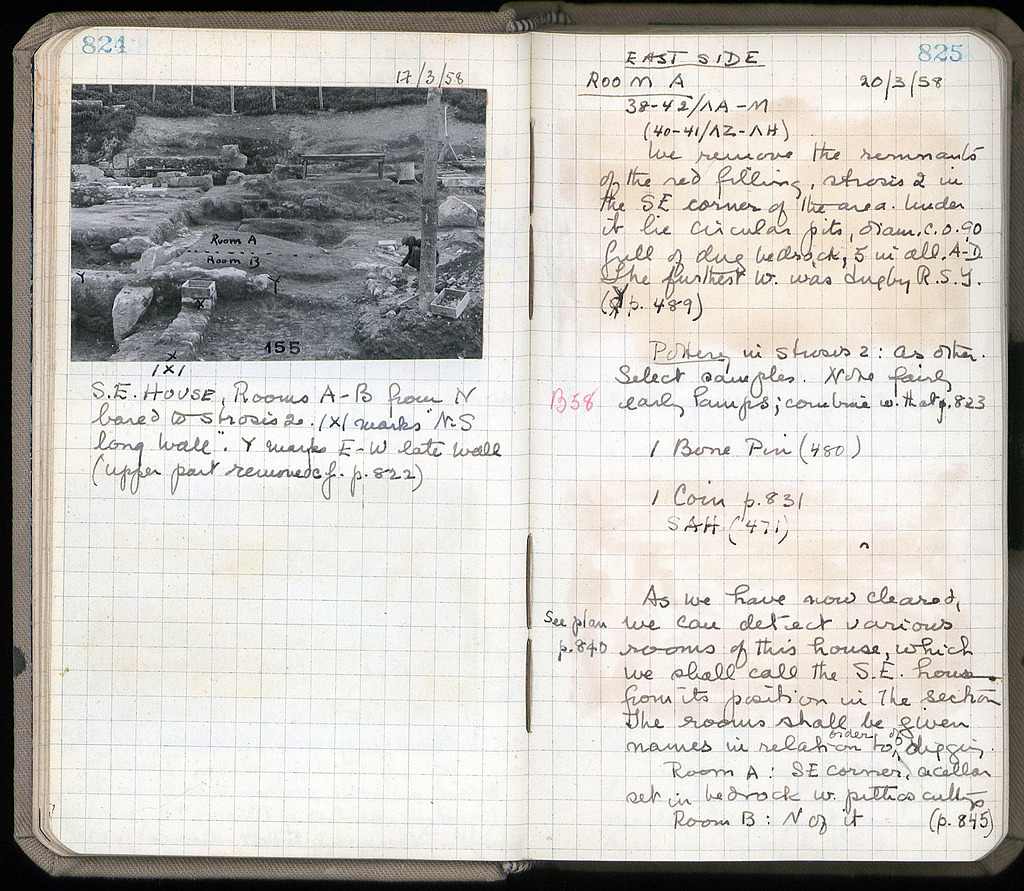 824
17/3/58
Room A
Room B
Y
Y
X
155
|X|
S.E. HOUSE, Rooms A-B from N
bared to Strosis 2. |X| marks "N-S
long wall". Y marks E-W late wall
(upper part removed cf. p. 822)
825
EAST SIDE
ROOM A 20/3/58
38-42/ΛΑ-Μ
(40-41/ΛΖ-ΛΗ)
We remove the remnants
of the red filling, strosis 2 in
the SE corner of the area. Under
it lie circular pits, diam. c. 0.90
full of dug bedrock, 5 in all. A-D
The furthest W. was dug by R.S.Y.
(Y p. 489)
Pottery in strosis 2: as other.
Select samples. Note fairly
B58
early lamps; combine w. that p. 823
1 Bone Pin (480)
1 Coin p. 831
SAH (471)
As we have now cleared,
See plan
p. 840
we can detect various
rooms of this house, which
we shall call the S.E. house
from its position in the section
The rooms shall be given
names in relation to order of digging.
Room A: SE corner, a cellar
set in bedrock w. pithos cuttings
Room B: N of it (p. 845)